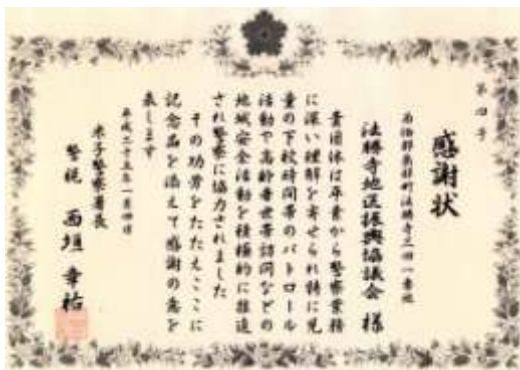 第四号
感謝状
西伯郡南部町法勝寺三四一番地
法勝寺地区振興協議会 様
貴団体は平素から警察業務
に深い理解を寄せられ特に児
童の下校時間帯のパトロール
活動や高齢者世帯訪問などの
地域安全活動を積極的に推進
され警察に協力されました
その功労をたたえここに
記念品を添えて感謝の意を
表します
平成二十五年一月四日
米子警察署長
警視 西垣幸祐